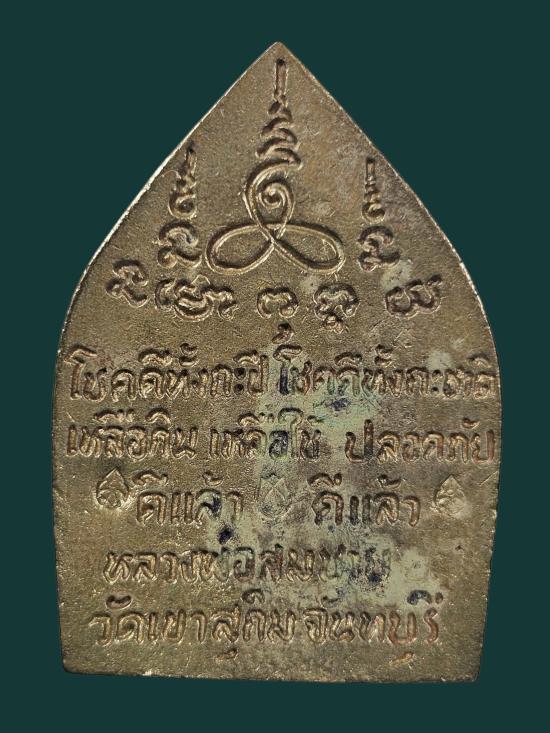 โชคดีทั้งกะปี โชคดีทั้งกะชาติ
เหลือกิน เหลือใช้ ปลอดภัย
ดีแล้ว ดีแล้ว
หลวงพ่อสมชาย
วัดเขาสุกิม จันทบุรี